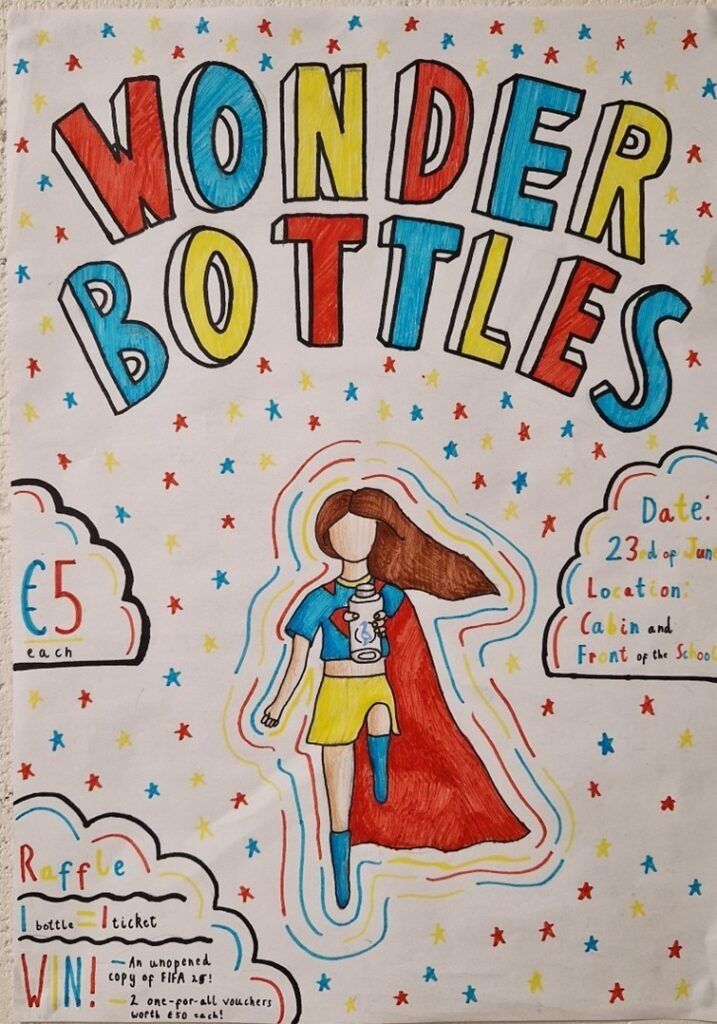 WONDER
BOTTLES
€5
each
Date:
23rd of June
Location:
Cabin and
Front of the School
Raffle
1 bottle = 1 ticket
WIN!
– An unopened
copy of FIFA 25!
– 2 one-for-all vouchers
worth €50 each!